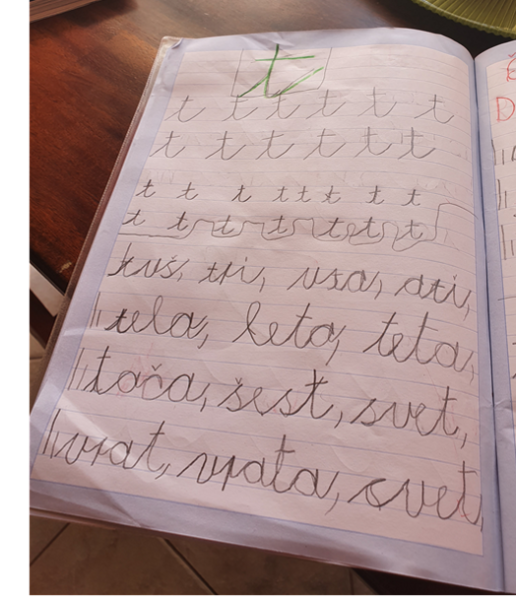 t
t t t t t t
t t t t t t
t t t t t t t t
t t t t t t t
tuš, tri, vsa, ati,
tela, leta, teta,
tača, šest, svet,
vrat, vrata, cvet,
D